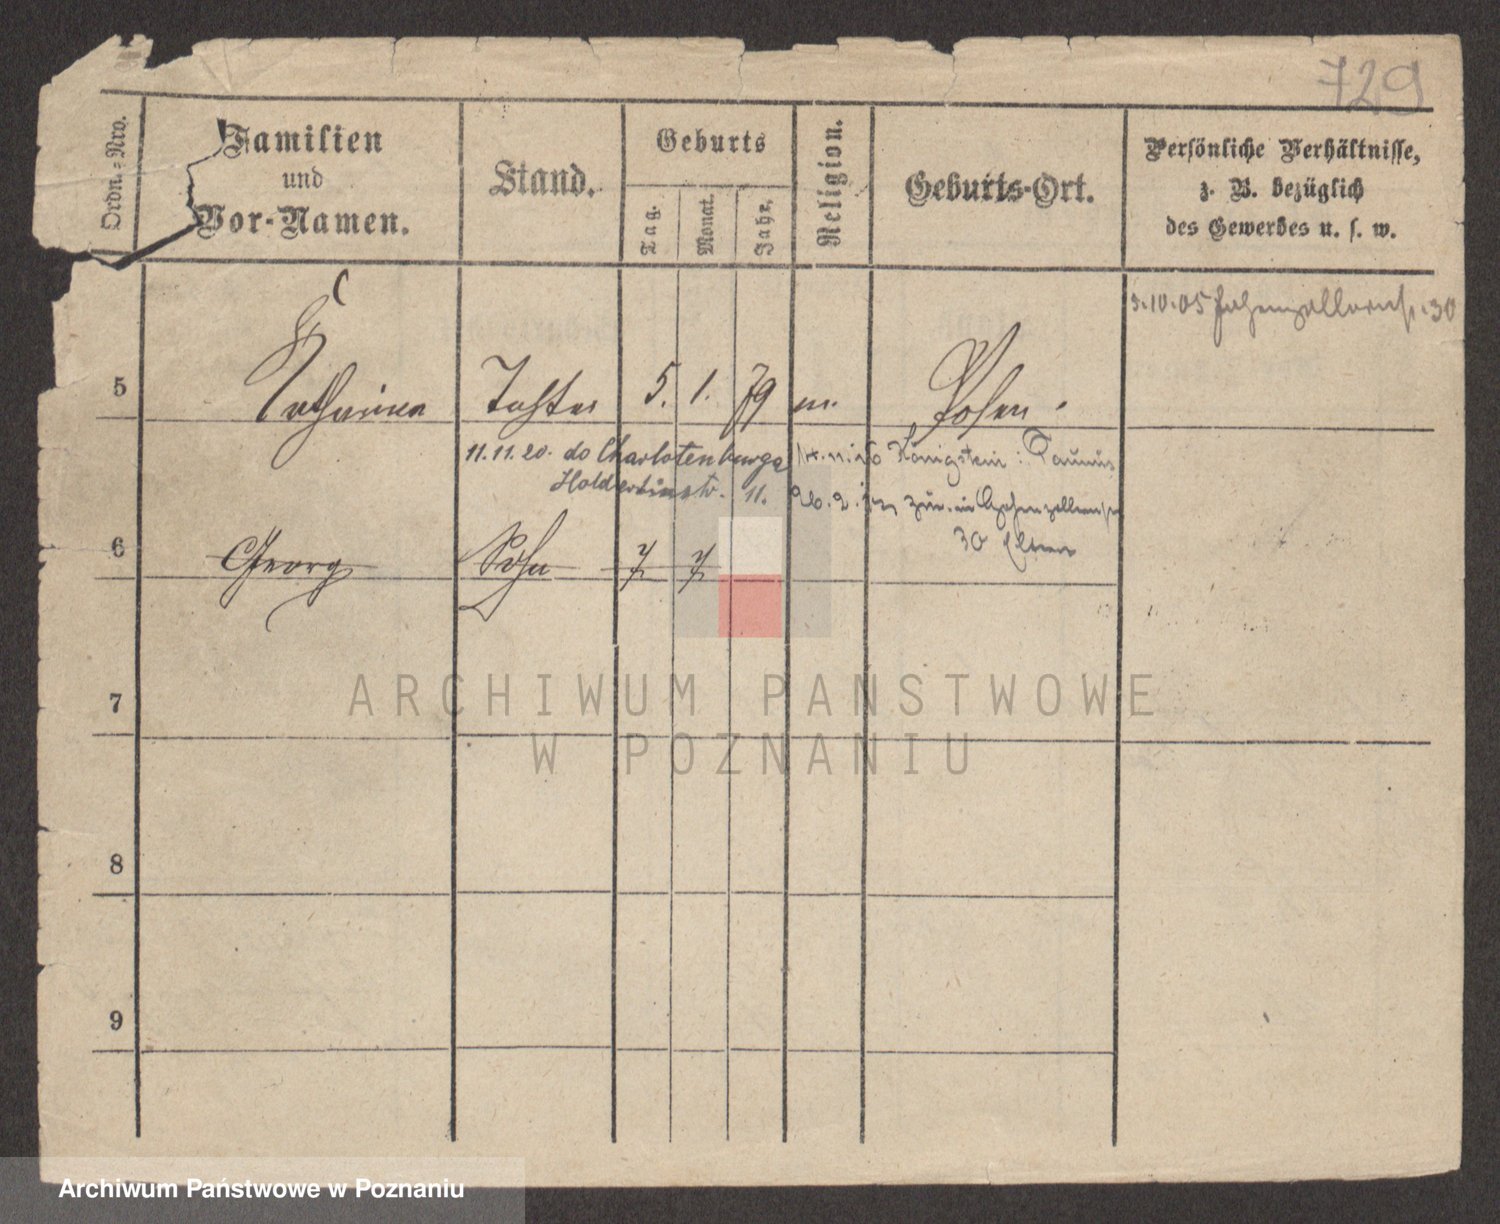 729
Ordn.-Nro.
Familien
und
Vor-Namen.
Stand.
Geburts
Tag.
Monat.
Jahr.
Religion.
Geburts-Ort.
Persönliche Verhältnisse,
z. B. bezüglich
des Gewerbes u. s. w.
3.10.05 Hohenzollernstr. 30
5 Katharina Tochter 5. 1. 79 m. Posen.
11.11.20. do Charlotenburga
Holderlinstr. 11.
Königstein i. Taunus
zur. in Hohenzollernstr
30 Eltern
6 Georg Sohn 7 7
7
8
9
ARCHIWUM PAŃSTWOWE
W POZNANIU
Archiwum Państwowe w Poznaniu